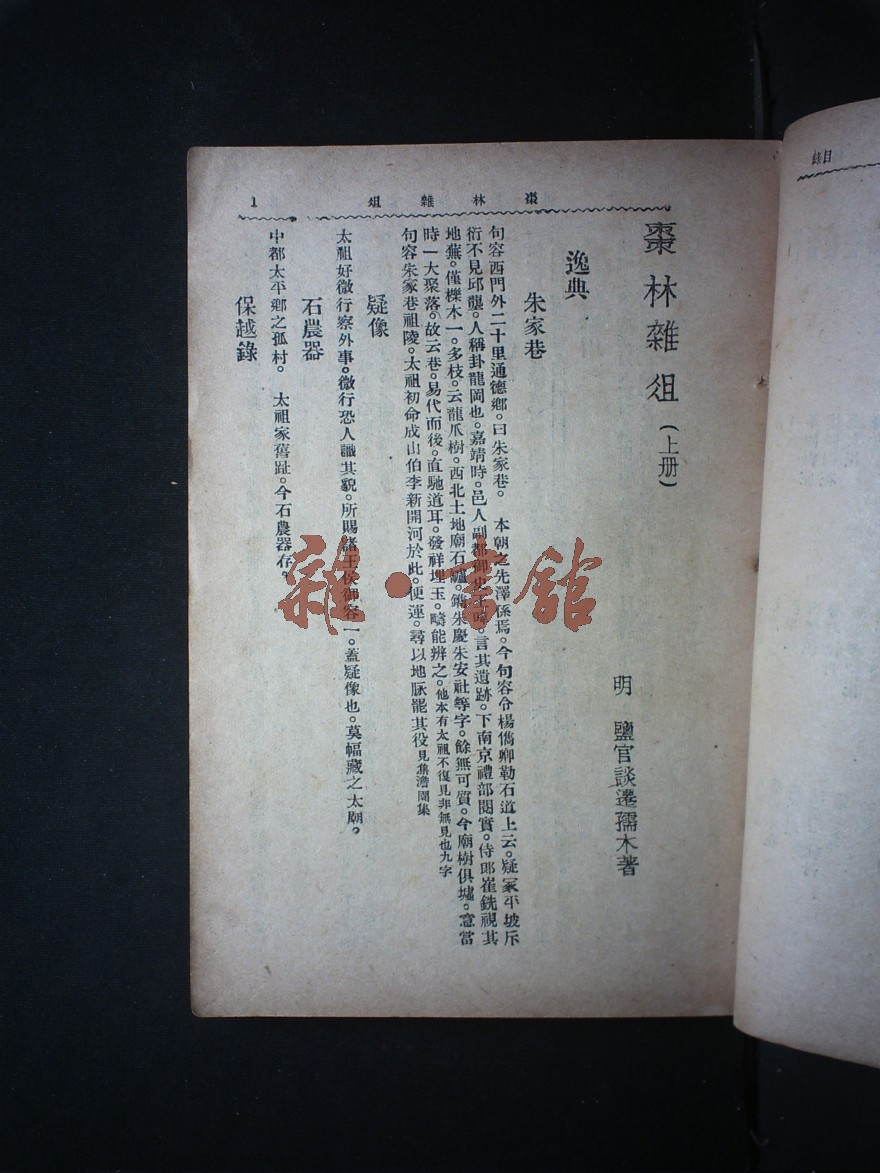 目錄
棗林雜俎
1
棗林雜俎(上册)
明 鹽官談遷孺木著
逸典
朱家巷
句容西門外二十里通德鄉。曰朱家巷。 本朝之先澤係焉。今句容令楊儁卿勒石道上云。疑冢平坡斥
衍不見邱壟。人稱卦龍岡也。嘉靖時。邑人副都御史 言其遺跡。下南京禮部閱實。侍郎崔銑視其
地蕪。僅櫟木一。多枝。云龍爪樹。西北土地廟石爐。鐫朱慶朱安社等字。餘無可質。今廟樹俱墟。意當
時一大聚落。故云巷。易代而後。直馳道耳。發祥埋玉。疇能辨之。他本有太祖不復見非無見也九字
句容朱家巷祖陵。太祖初命成山伯李新開河於此。便運。尋以地脈罷其役見集澹園集
疑像
太祖好微行察外事。微行恐人識其貌。所賜諸王侯御容一。蓋疑像也。莫幅藏之太廟。
石農器
中都太平鄉之孤村。 太祖家舊趾。今石農器存。
保越錄
雜·書館